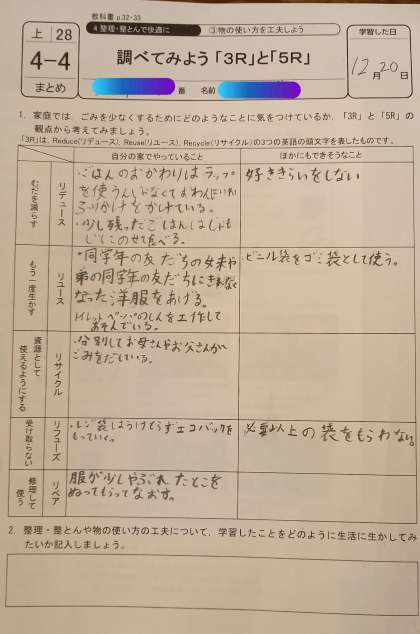 教科書 p.32・33
上 28
4-4
まとめ
4 整理・整とんで快適に
③物の使い方を工夫しよう
調べてみよう「3R」と「5R」
番 名前
学習した日
12月20日
1. 家庭では，ごみを少なくするためにどのようなことに気をつけているか，「3R」と「5R」の
観点から考えてみましょう。
「3R」は，Reduce(リデュース)，Reuse(リユース)，Recycle(リサイクル)の3つの英語の頭文字を表したものです。
自分の家でやっていること
ほかにもできそうなこと
むだを減らす
リデュース
・ごはんのおかわりはラップ
を使うんじゃなくておわんに
ふりかけをかけている。
・少し残ったごはんは
のせて食べる。
好ききらいをしない
もう一度生かす
リユース
・同学年の友だちの女や
弟の同学年の友だちにきれなく
なった洋服をあげる。
トイレットペーパーのしんを工作して
あそんでいる。
・ビニル袋をゴミ袋として使う。
資源として
使えるようにする
リサイクル
・分別してお母さんやお父さんが
ごみをだしている。
受け取らない
リフューズ
・レジ袋はうけとらずエコバックを
もっていく。
必要以上の袋をもらわない。
修理して
使う
リペア
服が少しやぶれたとこを
ぬってもらってなおす。
2. 整理・整とんや物の使い方の工夫について，学習したことをどのように生活に生かしてみ
たいか記入しましょう。